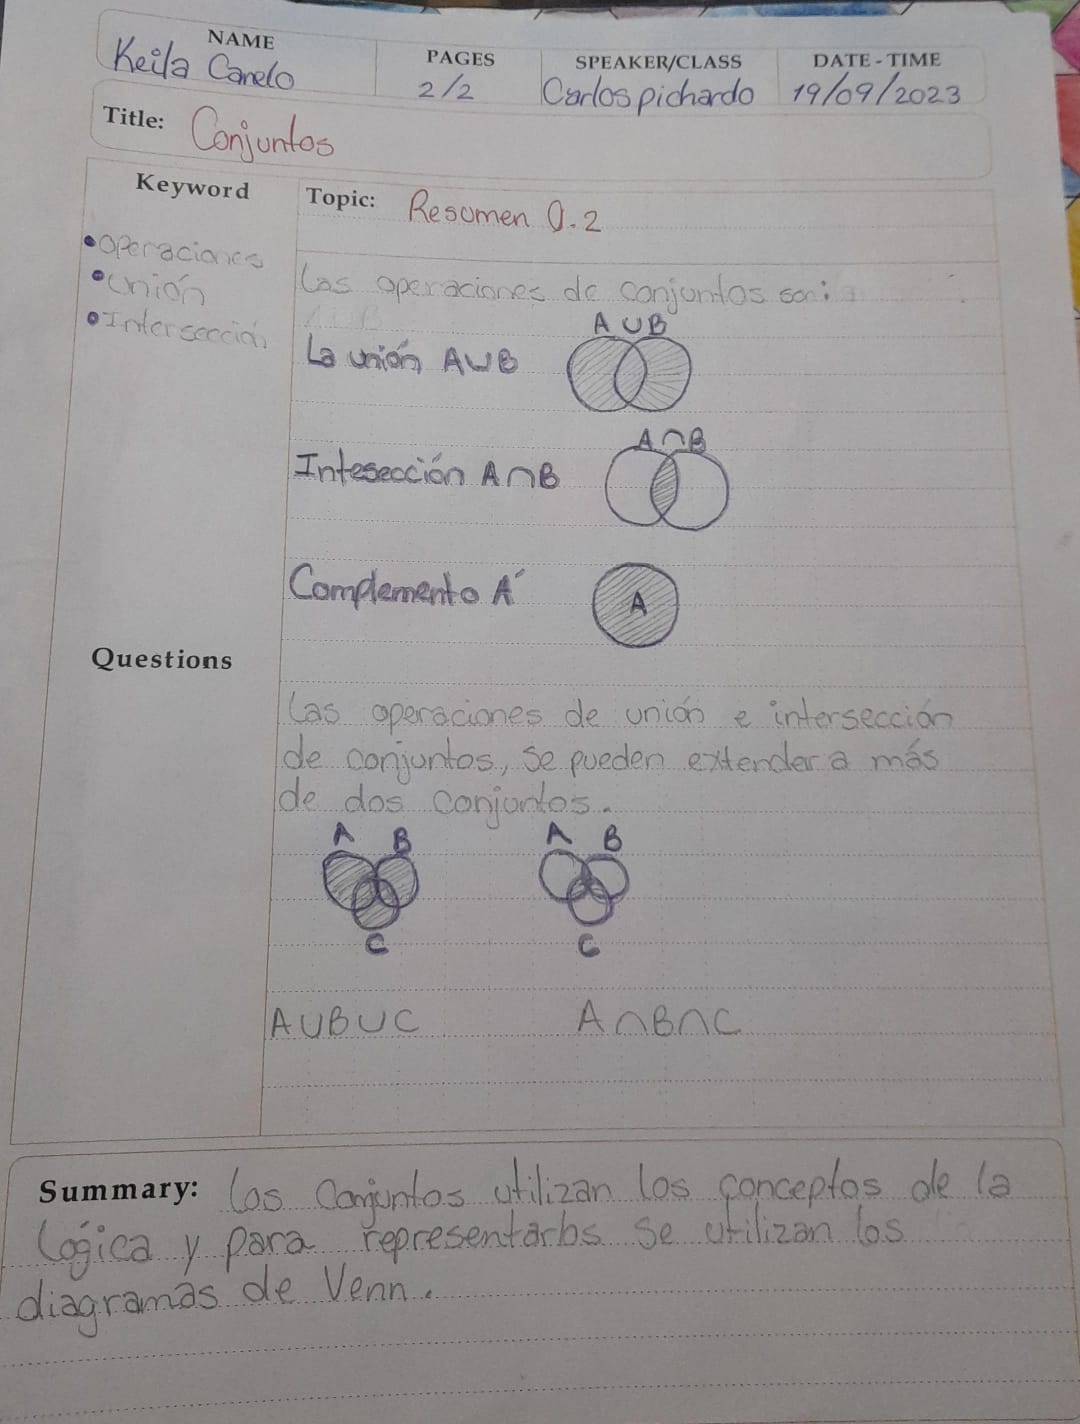 NAME
Keila Canelo
PAGES
2/2
SPEAKER/CLASS
Carlos pichardo
DATE - TIME
19/09/2023
Title: Conjuntos
Keyword
• Operaciones
• Unión
• Intersección
Questions
Topic: Resumen 0.2
Las operaciones de conjuntos son:
A ∪ B
La unión A∪B
A∩B
Intesección A∩B
Complemento A'
A
Las operaciones de unión e intersección
de conjuntos, se pueden extender a más
de dos conjuntos.
A B
C
A B
C
A∪B∪C
A∩B∩C
Summary: Los Conjuntos utilizan los conceptos de la
Lógica y para representarlos se utilizan los
diagramas de Venn.